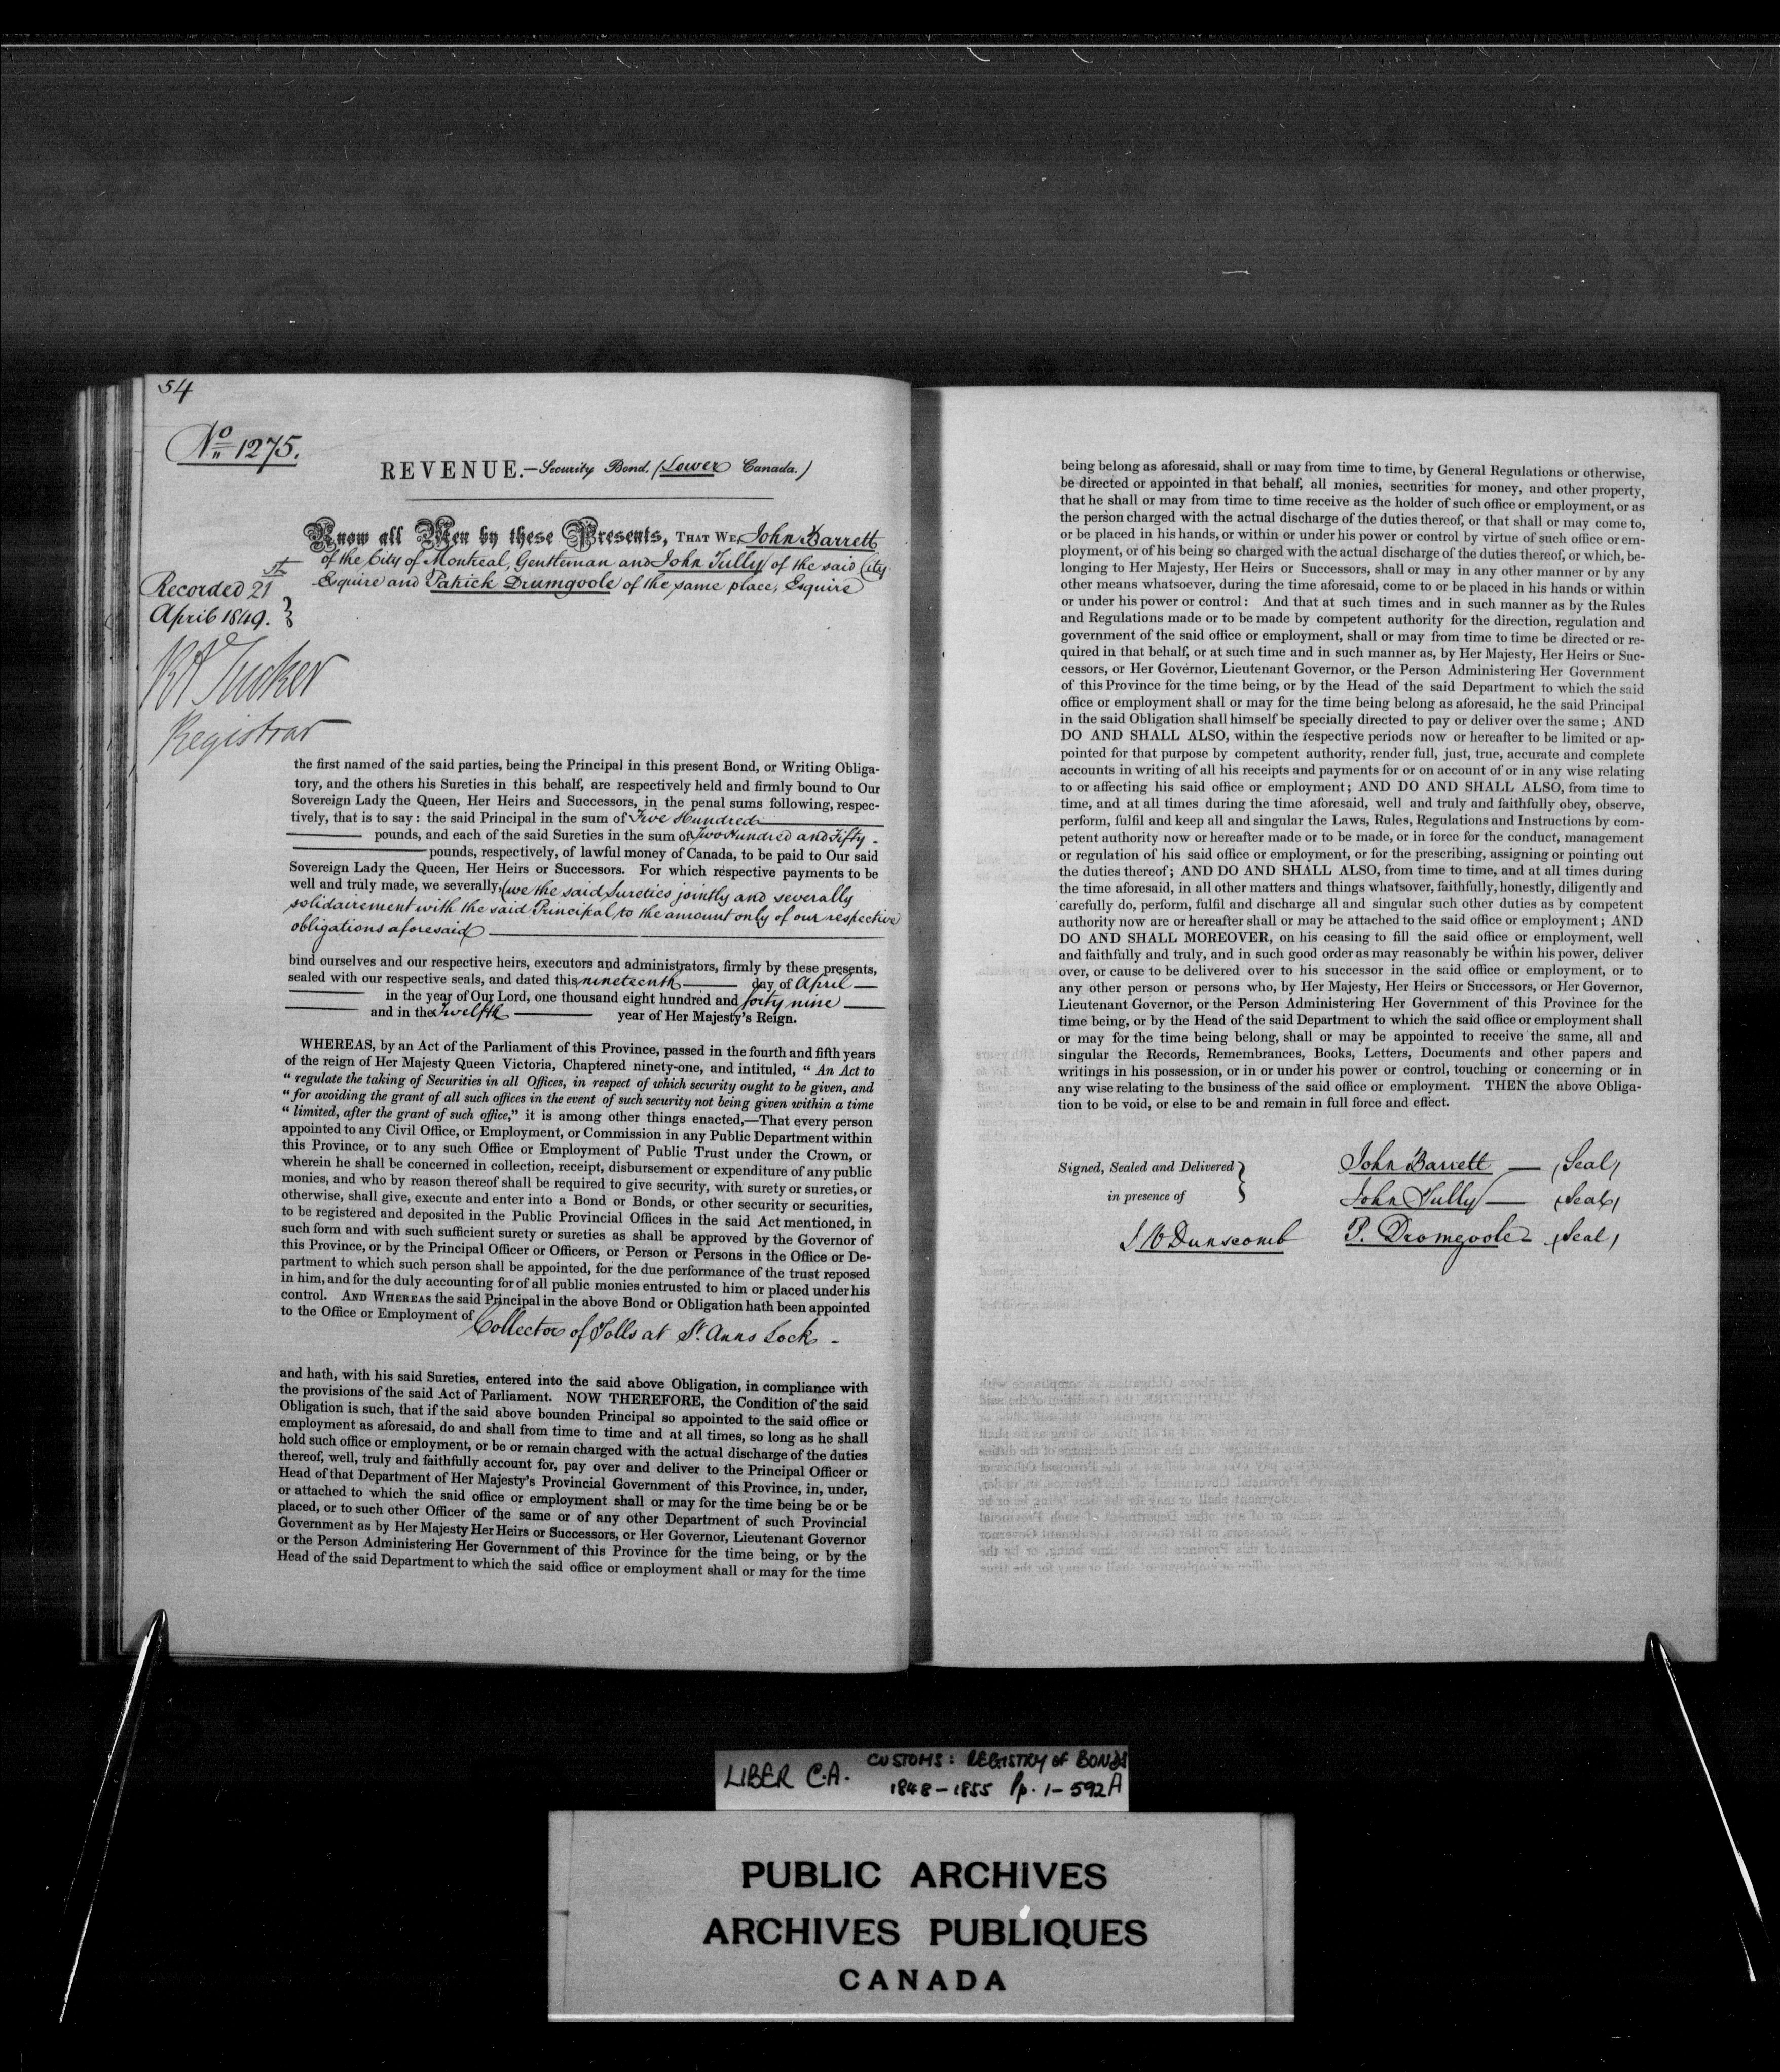 54
No 1275.
REVENUE.—Security Bond, (Lower Canada.)
Know all Men by these Presents, THAT WE, John Barrett
of the City of Montreal, Gentleman and John Tully of the said City
Esquire and Patrick Drumgoole of the same place, Esquire
Recorded 21st
April 1849.
R A Tucker
Registrar
the first named of the said parties, being the Principal in this present Bond, or Writing Obliga-
tory, and the others his Sureties in this behalf, are respectively held and firmly bound to Our
Sovereign Lady the Queen, Her Heirs and Successors, in the penal sums following, respec-
tively, that is to say: the said Principal in the sum of Five Hundred
pounds, and each of the said Sureties in the sum of Two Hundred and Fifty -
pounds, respectively, of lawful money of Canada, to be paid to Our said
Sovereign Lady the Queen, Her Heirs or Successors. For which respective payments to be
well and truly made, we severally, (we the said Sureties jointly and severally
solidairement with the said Principal, to the amount only of our respective
obligations aforesaid)
bind ourselves and our respective heirs, executors and administrators, firmly by these presents,
sealed with our respective seals, and dated this nineteenth day of April
in the year of Our Lord, one thousand eight hundred and forty nine
and in the Twelfth year of Her Majesty's Reign.
WHEREAS, by an Act of the Parliament of this Province, passed in the fourth and fifth years
of the reign of Her Majesty Queen Victoria, Chaptered ninety-one, and intituled, " An Act to
" regulate the taking of Securities in all Offices, in respect of which security ought to be given, and
" for avoiding the grant of all such offices in the event of such security not being given within a time
" limited, after the grant of such office," it is among other things enacted,—That every person
appointed to any Civil Office, or Employment, or Commission in any Public Department within
this Province, or to any such Office or Employment of Public Trust under the Crown, or
wherein he shall be concerned in collection, receipt, disbursement or expenditure of any public
monies, and who by reason thereof shall be required to give security, with surety or sureties, or
otherwise, shall give, execute and enter into a Bond or Bonds, or other security or securities,
to be registered and deposited in the Public Provincial Offices in the said Act mentioned, in
such form and with such sufficient surety or sureties as shall be approved by the Governor of
this Province, or by the Principal Officer or Officers, or Person or Persons in the Office or De-
partment to which such person shall be appointed, for the due performance of the trust reposed
in him, and for the duly accounting for of all public monies entrusted to him or placed under his
control. AND WHEREAS the said Principal in the above Bond or Obligation hath been appointed
to the Office or Employment of
Collector of Tolls at St. Anns Lock -
and hath, with his said Sureties, entered into the said above Obligation, in compliance with
the provisions of the said Act of Parliament. NOW THEREFORE, the Condition of the said
Obligation is such, that if the said above bounden Principal so appointed to the said office or
employment as aforesaid, do and shall from time to time and at all times, so long as he shall
hold such office or employment, or be or remain charged with the actual discharge of the duties
thereof, well, truly and faithfully account for, pay over and deliver to the Principal Officer or
Head of that Department of Her Majesty's Provincial Government of this Province, in, under,
or attached to which the said office or employment shall or may for the time being be or be
placed, or to such other Officer of the same or of any other Department of such Provincial
Government as by Her Majesty Her Heirs or Successors, or Her Governor, Lieutenant Governor
or the Person Administering Her Government of this Province for the time being, or by the
Head of the said Department to which the said office or employment shall or may for the time
being belong as aforesaid, shall or may from time to time, by General Regulations or otherwise,
be directed or appointed in that behalf, all monies, securities for money, and other property,
that he shall or may from time to time receive as the holder of such office or employment, or as
the person charged with the actual discharge of the duties thereof, or that shall or may come to,
or be placed in his hands, or within or under his power or control by virtue of such office or em-
ployment, or of his being so charged with the actual discharge of the duties thereof, or which, be-
longing to Her Majesty, Her Heirs or Successors, shall or may in any other manner or by any
other means whatsoever, during the time aforesaid, come to or be placed in his hands or within
or under his power or control: And that at such times and in such manner as by the Rules
and Regulations made or to be made by competent authority for the direction, regulation and
government of the said office or employment, shall or may from time to time be directed or re-
quired in that behalf, or at such time and in such manner as, by Her Majesty, Her Heirs or Suc-
cessors, or Her Governor, Lieutenant Governor, or the Person Administering Her Government
of this Province for the time being, or by the Head of the said Department to which the said
office or employment shall or may for the time being belong as aforesaid, he the said Principal
in the said Obligation shall himself be specially directed to pay or deliver over the same; AND
DO AND SHALL ALSO, within the respective periods now or hereafter to be limited or ap-
pointed for that purpose by competent authority, render full, just, true, accurate and complete
accounts in writing of all his receipts and payments for or on account of or in any wise relating
to or affecting his said office or employment; AND DO AND SHALL ALSO, from time to
time, and at all times during the time aforesaid, well and truly and faithfully obey, observe,
perform, fulfil and keep all and singular the Laws, Rules, Regulations and Instructions by com-
petent authority now or hereafter made or to be made, or in force for the conduct, management
or regulation of his said office or employment, or for the prescribing, assigning or pointing out
the duties thereof; AND DO AND SHALL ALSO, from time to time, and at all times during
the time aforesaid, in all other matters and things whatsover, faithfully, honestly, diligently and
carefully do, perform, fulfil and discharge all and singular such other duties as by competent
authority now are or hereafter shall or may be attached to the said office or employment; AND
DO AND SHALL MOREOVER, on his ceasing to fill the said office or employment, well
and faithfully and truly, and in such good order as may reasonably be within his power, deliver
over, or cause to be delivered over to his successor in the said office or employment, or to
any other person or persons who, by Her Majesty, Her Heirs or Successors, or Her Governor,
Lieutenant Governor, or the Person Administering Her Government of this Province for the
time being, or by the Head of the said Department to which the said office or employment shall
or may for the time being belong, shall or may be appointed to receive the same, all and
singular the Records, Remembrances, Books, Letters, Documents and other papers and
writings in his possession, or in or under his power or control, touching or concerning or in
any wise relating to the business of the said office or employment. THEN the above Obliga-
tion to be void, or else to be and remain in full force and effect.
Signed, Sealed and Delivered
in presence of
John Barrett — (Seal)
John Tully — (Seal)
J W Dunscomb P. Dromgoole (Seal)
LIBER C.A. CUSTOMS: REGISTRY OF BONDS
1848-1855 pp. 1-592A
PUBLIC ARCHIVES
ARCHIVES PUBLIQUES
CANADA